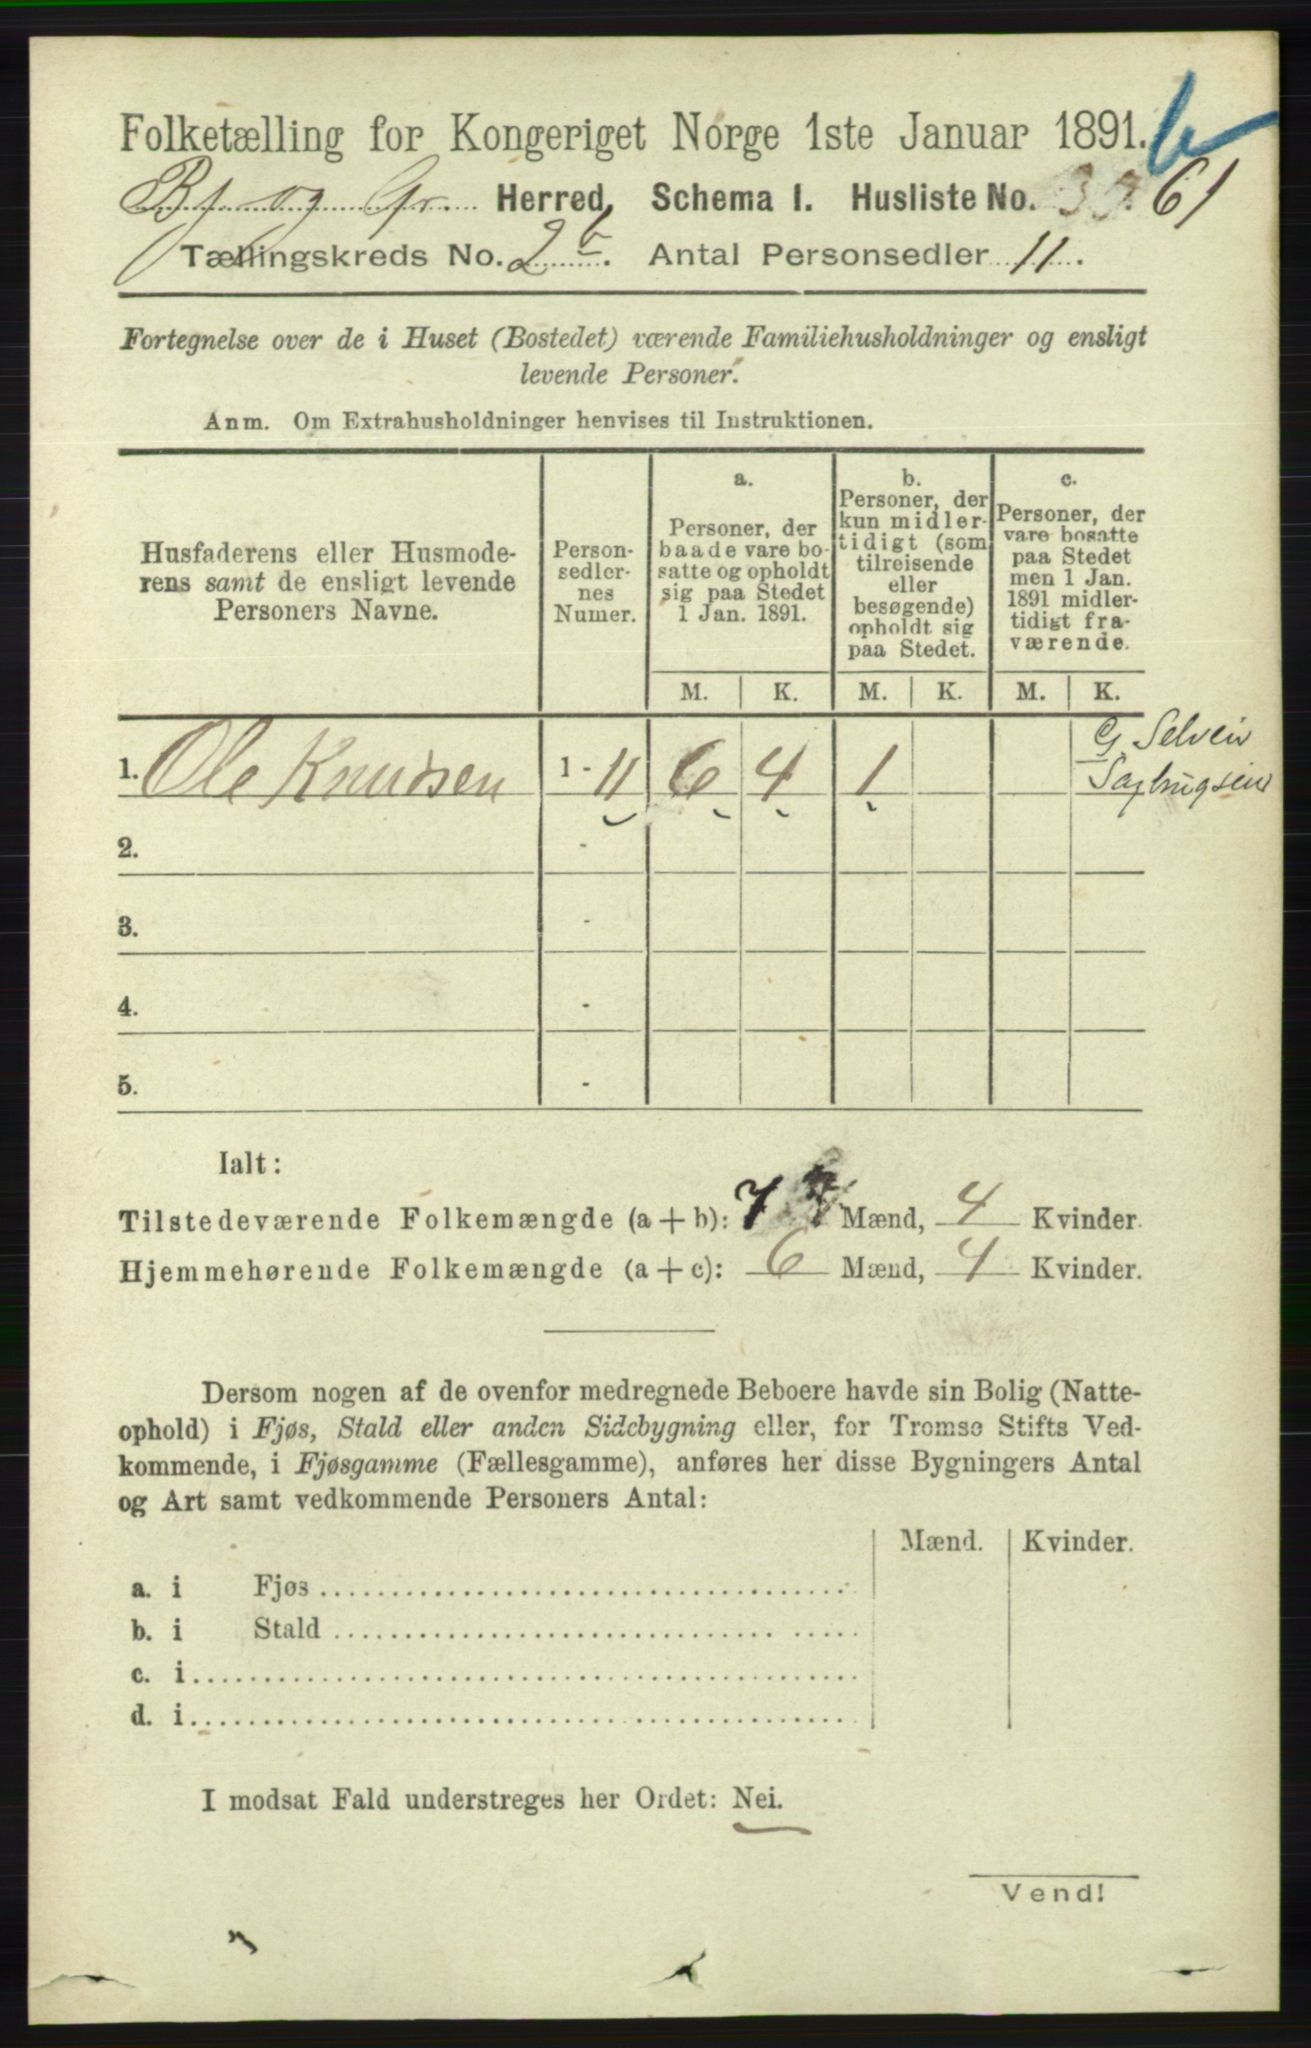 Folketælling for Kongeriget Norge 1ste Januar 1891.
Bj. og Gr. Herred, Schema I. Husliste No. 61
Tællingskreds No. 2 b. Antal Personsedler 11.
Fortegnelse over de i Huset (Bostedet) værende Familiehusholdninger og ensligt
levende Personer.
Anm. Om Extrahusholdninger henvises til Instruktionen.
Husfaderens eller Husmode-
rens samt de ensligt levende
Personers Navne.
Person-
sedler-
nes
Numer.
a.
Personer, der
baade vare bo-
satte og opholdt
sig paa Stedet
1 Jan. 1891.
b.
Personer, der
kun midler-
tidigt (som
tilreisende
eller
besøgende)
opholdt sig
paa Stedet.
c.
Personer, der
vare bosatte
paa Stedet
men 1 Jan.
1891 midler-
tidigt fra-
værende.
M. K. M. K. M. K.
G. Selvei
1. Ole Knudsen 1 - 11 6 4 1
2. -
3. -
4. -
5. -
Ialt:
Tilstedeværende Folkemængde (a + b): 7 Mænd, 4 Kvinder.
Hjemmehørende Folkemængde (a + c): 6 Mænd, 4 Kvinder.
Dersom nogen af de ovenfor medregnede Beboere havde sin Bolig (Natte-
ophold) i Fjøs, Stald eller anden Sidebygning eller, for Tromsø Stifts Ved-
kommende, i Fjøsgamme (Fællesgamme), anføres her disse Bygningers Antal
og Art samt vedkommende Personers Antal:
Mænd. Kvinder.
a. i Fjøs
b. i Stald
c. i
d. i
I modsat Fald understreges her Ordet: Nei.
Vend!